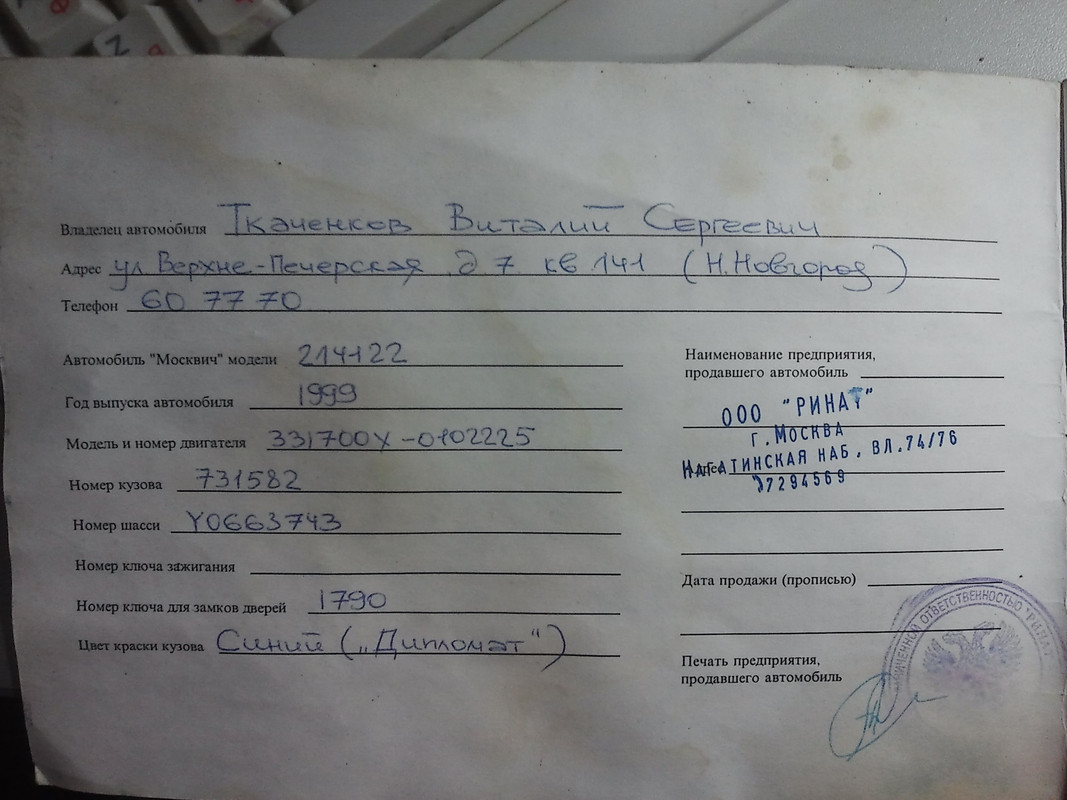 Владелец автомобиля Ткаченков Виталий Сергеевич
Адрес ул Верхне-Печерская д 7 кв 141 (Н.Новгород)
Телефон 60 77 70
Автомобиль "Москвич" модели 214122
Год выпуска автомобиля 1999
Модель и номер двигателя 331700X-0102225
Номер кузова 731582
Номер шасси Y0663743
Номер ключа зажигания
Номер ключа для замков дверей 1790
Цвет краски кузова Синий („Дипломат")
Наименование предприятия,
продавшего автомобиль
ООО "РИНАТ"
г.МОСКВА
НАГАТИНСКАЯ НАБ, ВЛ.74/76
7294569
Дата продажи (прописью)
Печать предприятия,
продавшего автомобиль
ОТВЕТСТВЕННОСТЬЮ